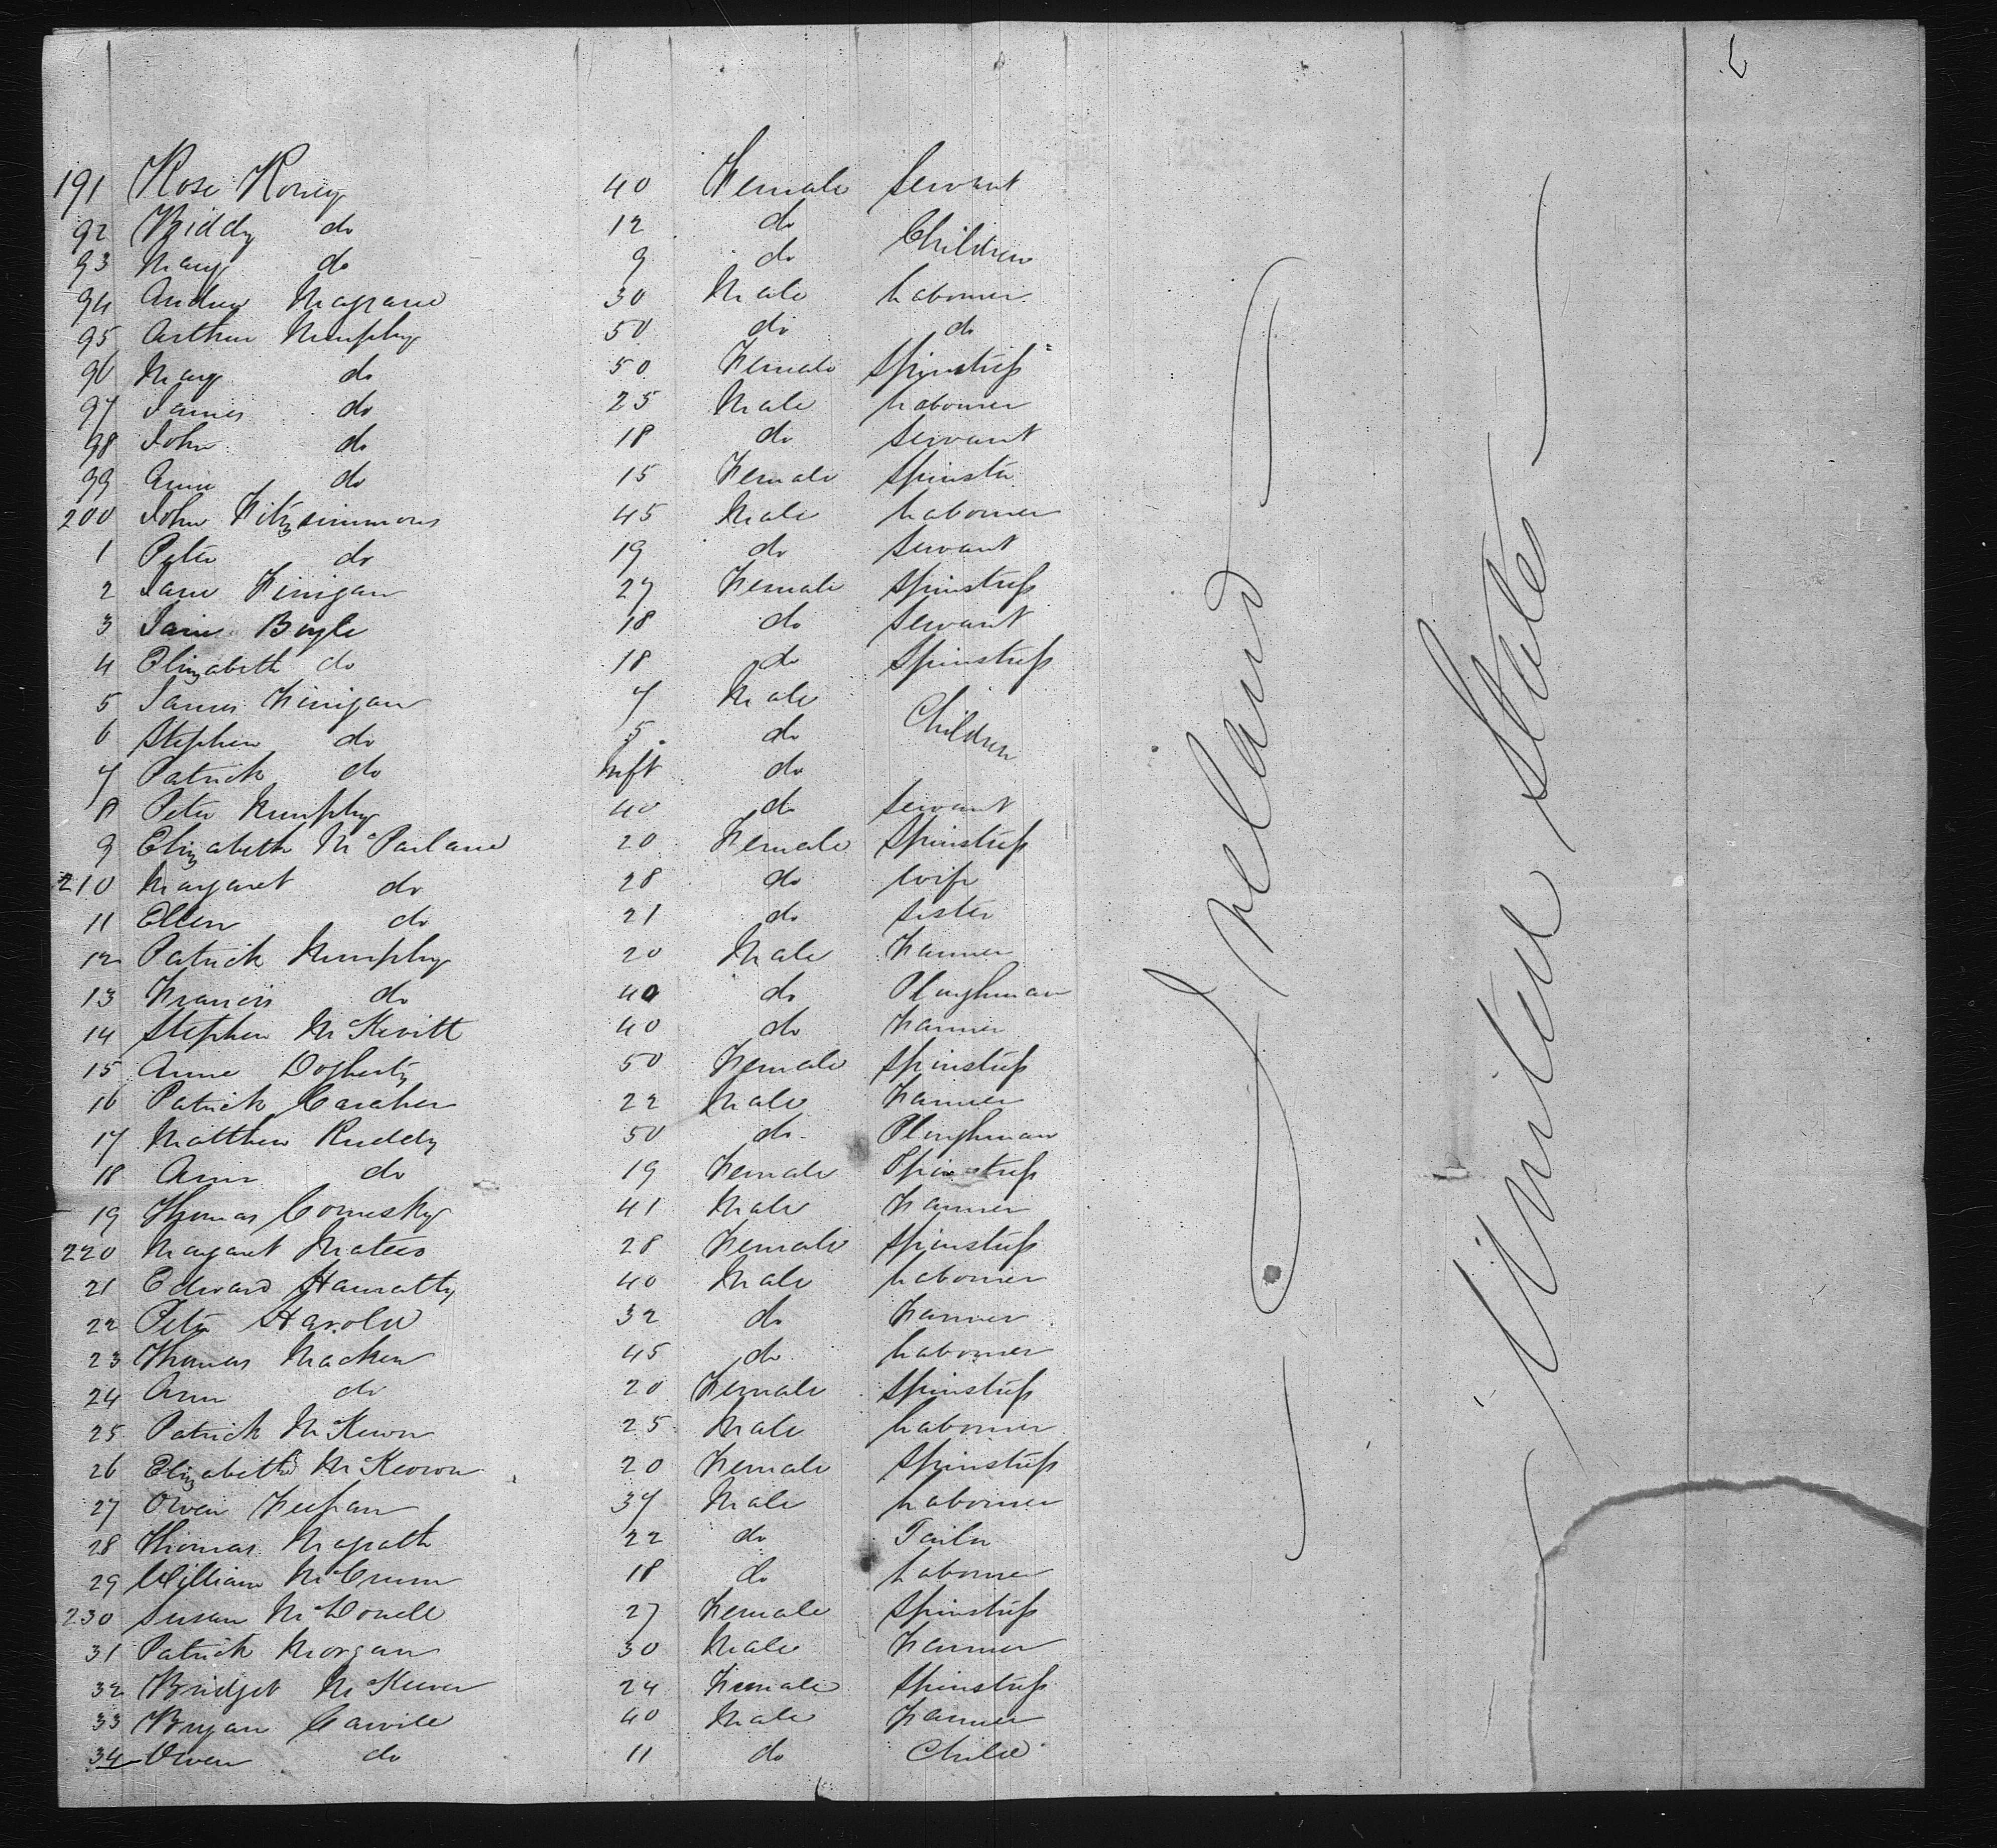 191 Rose Roney 40 Female Servant
92 Biddy do 12 do Children
93 Mary do 9 do
94 Andrew Magrane 30 Male Labourer
95 Arthur Murphy 50 do do
96 Mary do 50 Female Spinstress
97 James do 25 Male Labourer
98 John do 18 do Servant
99 Anne do 15 Female Spinster
200 John Fitzsimmons 45 Male Labourer
1 Peter do 19 do Servant
2 Jane Finigan 27 Female Spinstress
3 Jane Boyle 18 do Servant
4 Elizabeth do 18 do Spinstress
5 James Finigan 7 Male Children
6 Stephen do 5 do
7 Patrick do Inft do
8 Peter Murphy 40 do Servant
9 Elizabeth McParland 20 Female Spinstress
210 Margaret do 28 do Wife
11 Ellen do 21 do Sister
12 Patrick Murphy 20 Male Farmer
13 Francis do 40 do Ploughman
14 Stephen McKevitt 40 do Farmer
15 Anne Dogherty 50 Female Spinstress
16 Patrick Caraher 22 Male Farmer
17 Matthew Ruddy 50 do Ploughman
18 Ann do 19 Female Spinstress
19 Thomas Comesky 41 Male Farmer
220 Margaret 28 Female Spinstress
21 Edward Hanratty 40 Male Labourer
22 Peter Harold 32 do Farmer
23 Thomas Macken 45 do Labourer
24 Ann do 20 Female Spinstress
25 Patrick McKeown 25 Male Labourer
26 Elizabeth McKeown 20 Female Spinstress
27 Owen Feehan 37 Male Labourer
28 Thomas Magrath 22 do Tailor
29 William McCrum 18 do Labourer
230 Susan McDonell 27 Female Spinstress
31 Patrick Morgan 30 Male Farmer
32 Bridget McKeever 24 Female Spinstress
33 Bryan Carvill 40 Male Farmer
34 Owen do 11 do Child
Ireland
United States